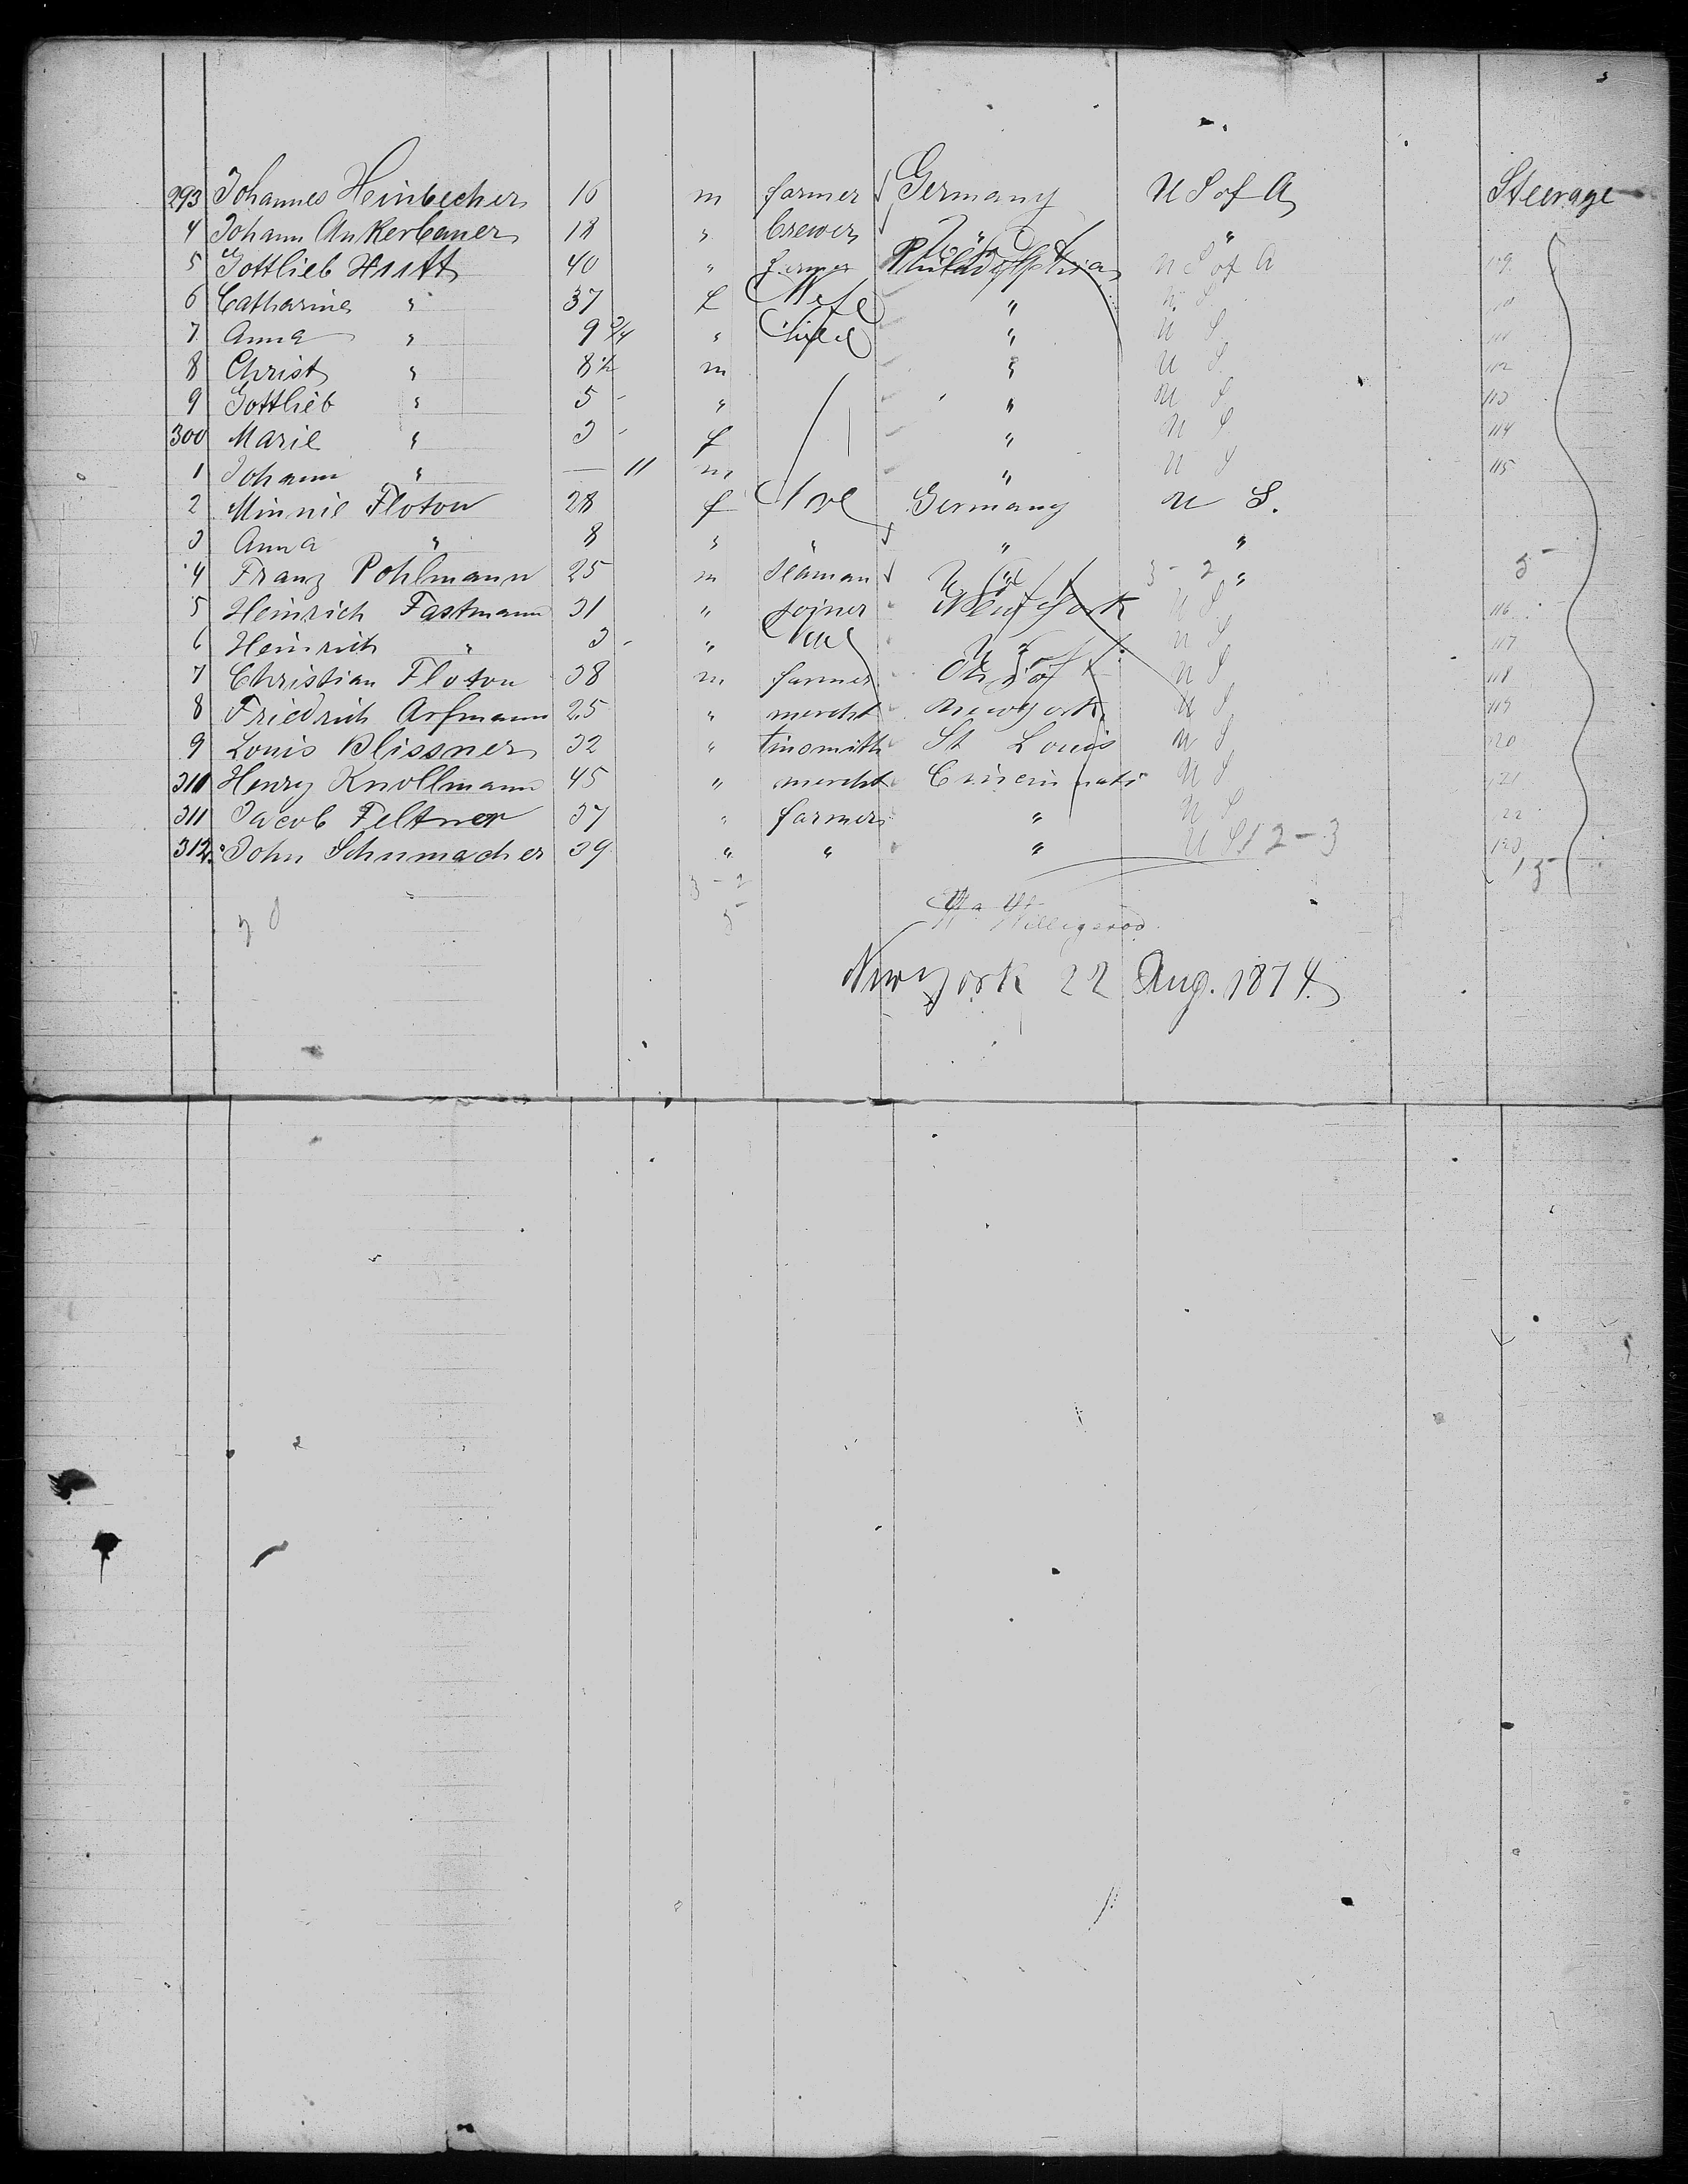 293 Johannes Heinbecher 16 m farmer Germany U S of A Steerage
4 Johann Ankerbauer 18 " brewer " "
5 Gottlieb Hutt 40 " farmer Philadelphia U S of A 109
6 Catharine " 37 f Wife " U S 110
7 Anna " 9 3/4 " Child " U S 111
8 Christ " 8 1/2 m " U S 112
9 Gottlieb " 5 - " " U S 113
300 Marie " 3 - f " U S 114
1 Johann " — 11 m " U S 115
2 Minnie Floton 28 f None Germany U S.
3 Anna " 8 " " " "
4 Franz Pohlmann 25 m Seaman " 3 - 2 " 5
5 Heinrich Fastmann 31 " joiner New York U S 116
6 Heinrich " 3 - " " U S 117
7 Christian Floton 38 m farmer U S 118
8 Friedrich Arfmann 25 " mercht New york U S 119
9 Louis Blissner 32 " tinsmith St Louis U S 120
310 Henry Knollmann 45 " mercht Cincinnati U S 121
311 Jacob Feltner 37 " farmer " U S 22
312. John Schumacher 39 " " " U S 2 - 3 123
3 - 2 15
5
Willigerod
New york 22 Aug. 1874.